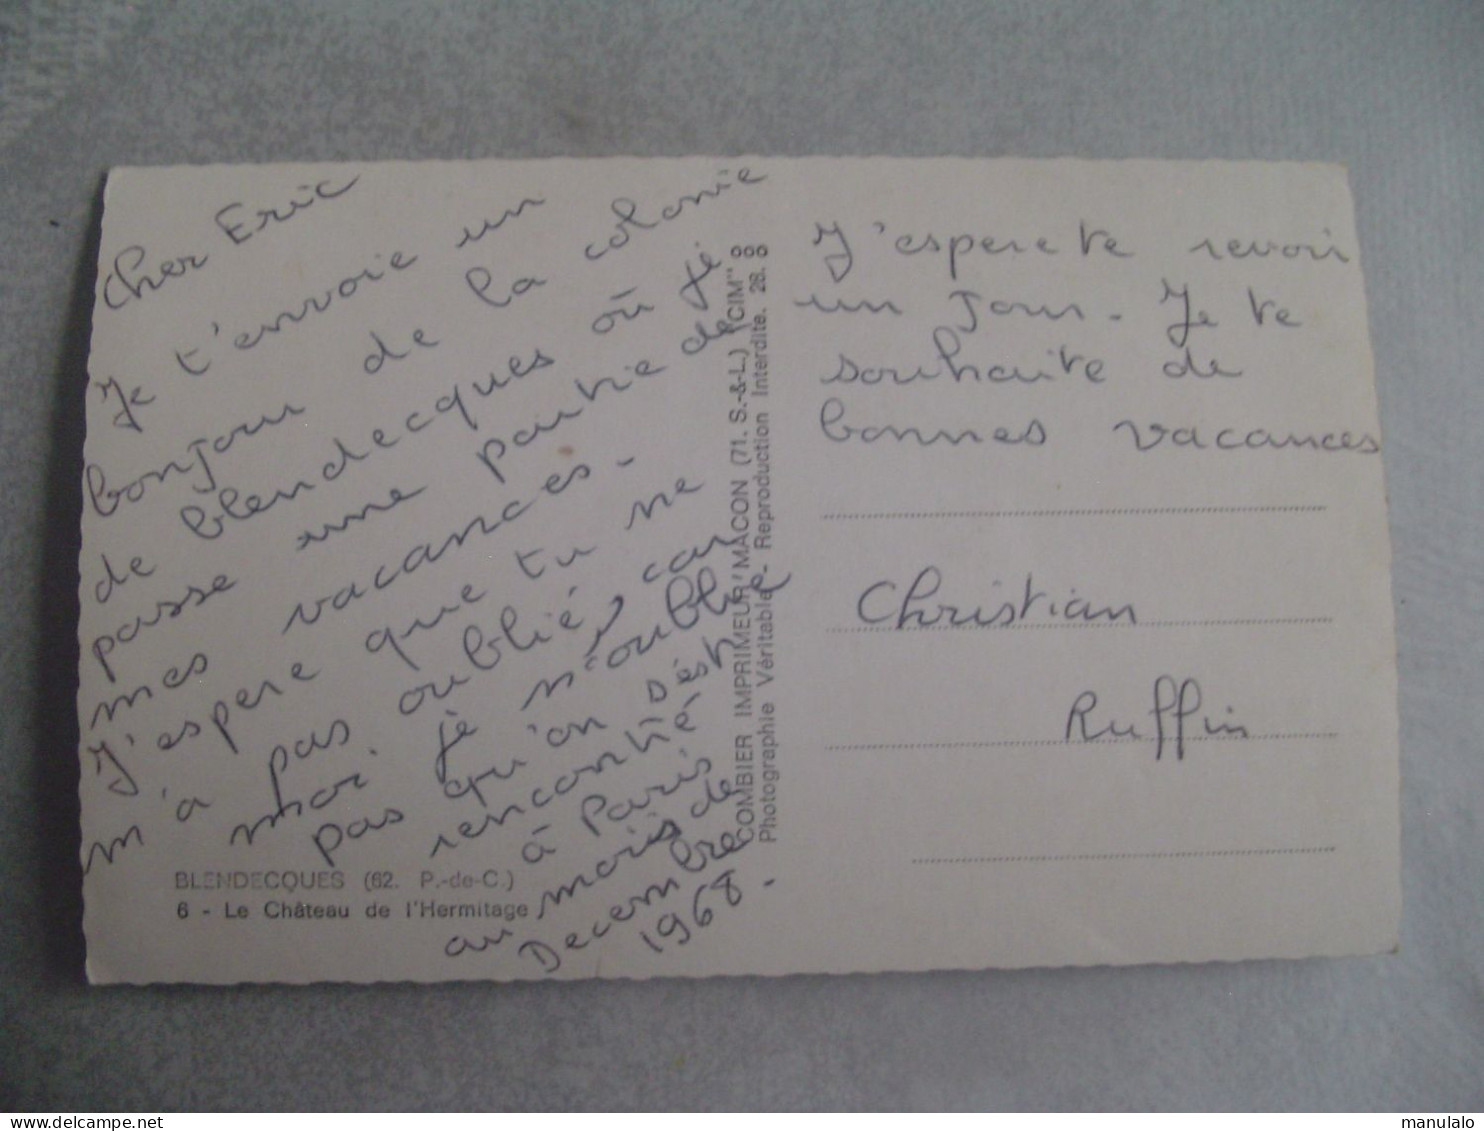 Cher Eric
Je t'envoie un
bonjour de la colonie
de blendecques où je
passe une partie de
mes vacances.
J'espere que tu ne
m'a pas oublié, car
moi je n'oublie
pas qu'on s'est
rencontré
à Paris
au mois de
Decembre
1968.
BLENDECQUES (62. P.-de-C.)
6 - Le Château de l'Hermitage
COMBIER IMPRIMEUR MACON (71. S.-&-L.) "CIM"
Photographie Véritable - Reproduction Interdite. 28.
J'espere te revoir
un jour. Je te
souhaite de
bonnes vacances
Christian
Ruffin
www.delcampe.net
manulalo